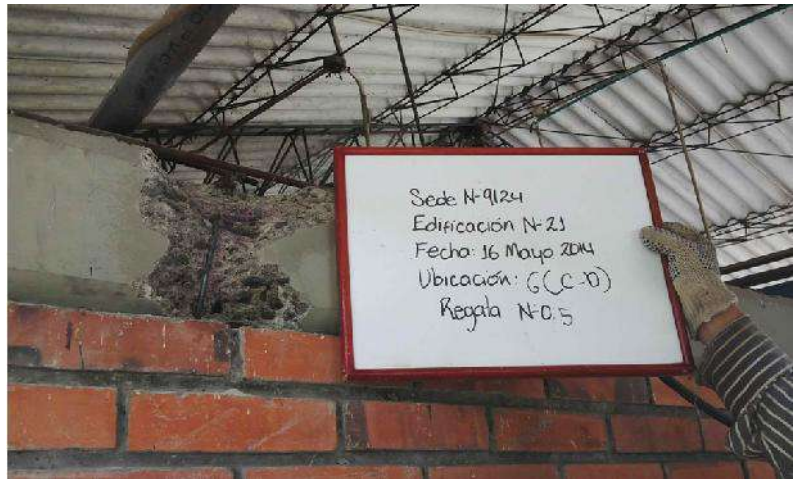 Sede N-9124
Edificación N-21
Fecha: 16 Mayo 2014
Ubicación: G(C-D)
Regata N-0.5